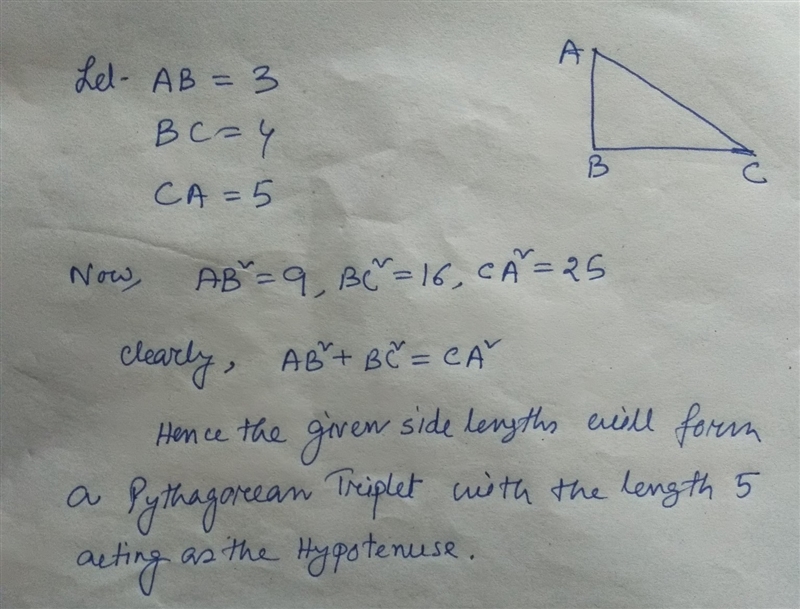 Let- AB = 3
BC = 4
CA = 5
A
B
C
Now, AB² = 9, BC² = 16, CA² = 25
clearly, AB² + BC² = CA²
Hence the given side lengths will form
a Pythagorean Triplet with the length 5
acting as the Hypotenuse.